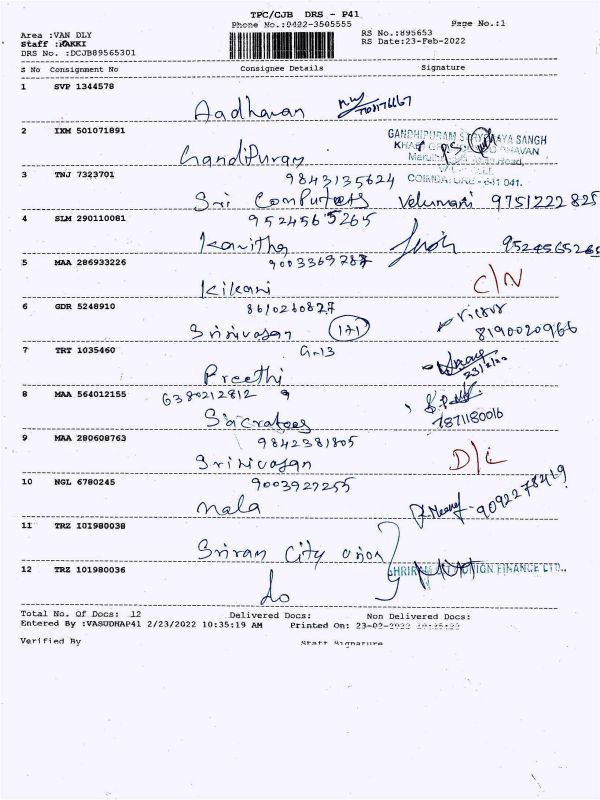 TPC/CJB DRS - P41
Phone No.:0422-3505555 Page No.:1
Area :VAN DLY RS No.:895653
Staff :KAKKI RS Date:23-Feb-2022
DRS No. :DCJB89565301
S No Consignment No Consignee Details Signature
1 SVP 1344578
Aadhavan
2 IXM 501071891
GANDHIPURAM SANGH
Gandipuram
BHAVAN
3 TNJ 7323701 9843135624
COIMBATORE - 641 041.
Sri Computers Velumani 9751222825
4 SLM 290110081 9524565265
Kavitha 9524565265
5 MAA 286933226 9003369787
Kikani C/N
6 GDR 5248910 8610260827
Srinivasan 121 Victor
8190020966
7 TRT 1035460 G-13
Preethi 23/2/22
8 MAA 564012155 6380212812
Socratees 7871180016
9 MAA 280608763 9842381805
Srinivasan D/L
10 NGL 6780245 9003927255
Mala 9092278419
11 TRZ 101980038
Sriram City Union
12 TRZ 101980036 SHRIRAM CITY UNION FINANCE LTD.,
do
Total No. Of Docs: 12 Delivered Docs: Non Delivered Docs:
Entered By :VASUDHAP41 2/23/2022 10:35:19 AM Printed On: 23-02-2022 10:35:23
Verified By Staff Signature